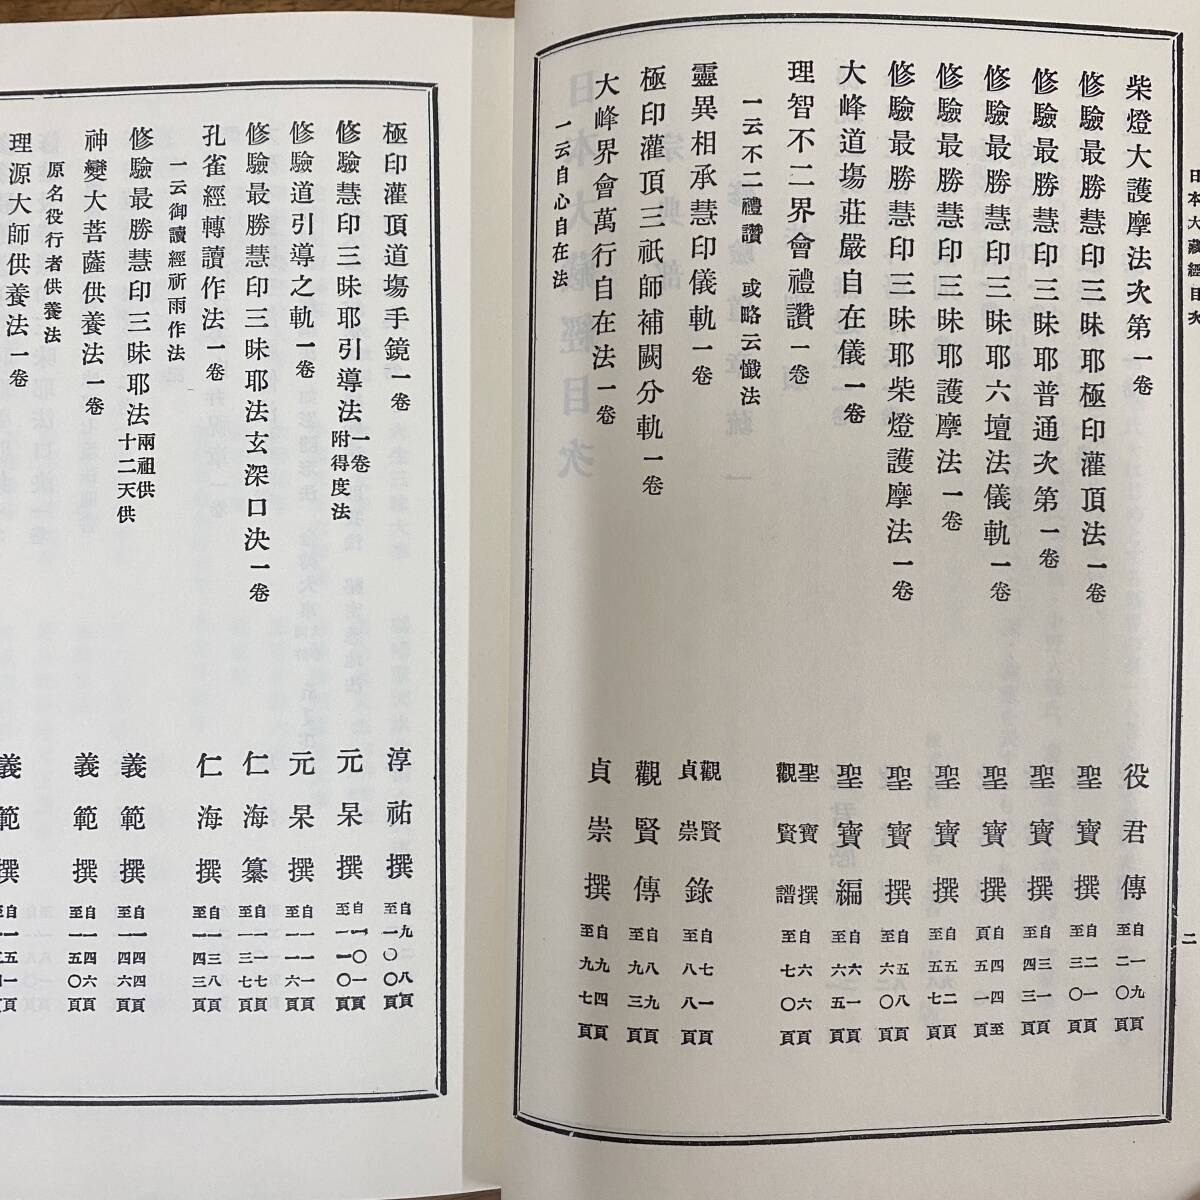 日本大藏經目次
二
柴燈大護摩法次第一卷 役君傳 自一九頁至二〇頁
修驗最勝慧印三昧耶極印灌頂法一卷 聖寶撰 自二一頁至三〇頁
修驗最勝慧印三昧耶普通次第一卷 聖寶撰 自三一頁至四三頁
修驗最勝慧印三昧耶六壇法儀軌一卷 聖寶撰 自四四頁至五一頁
修驗最勝慧印三昧耶護摩法一卷 聖寶撰 自五二頁至五七頁
修驗最勝慧印三昧耶柴燈護摩法一卷 聖寶撰 自五八頁至六〇頁
大峰道場莊嚴自在儀一卷 聖寶編 自六一頁至六五頁
理智不二界會禮讚一卷 聖寶撰 觀賢譜 自六六頁至七〇頁
一云不二禮讚 或略云懺法
靈異相承慧印儀軌一卷 觀賢 貞崇錄 自七一頁至八八頁
極印灌頂三祇師補闕分軌一卷 觀賢傳 自八九頁至九三頁
大峰界會萬行自在法一卷 貞崇撰 自九四頁至九七頁
一云自心自在法
極印灌頂道場手鏡一卷 淳祐撰 自九八頁至一〇〇頁
修驗慧印三昧耶引導法一卷 附得度法 元杲撰 自一〇一頁至一一〇頁
修驗道引導之軌一卷 元杲撰 自一一一頁至一一六頁
修驗最勝慧印三昧耶法玄深口決一卷 仁海纂 自一一七頁至一三七頁
孔雀經轉讀作法一卷 仁海撰 自一三八頁至一四三頁
一云御讀經祈雨作法
修驗最勝慧印三昧耶法 兩祖供 十二天供 義範撰 自一四四頁至一四六頁
神變大菩薩供養法一卷 義範撰 自一四六頁至一五〇頁
原名役行者供養法
理源大師供養法一卷 義範撰 自一五一頁